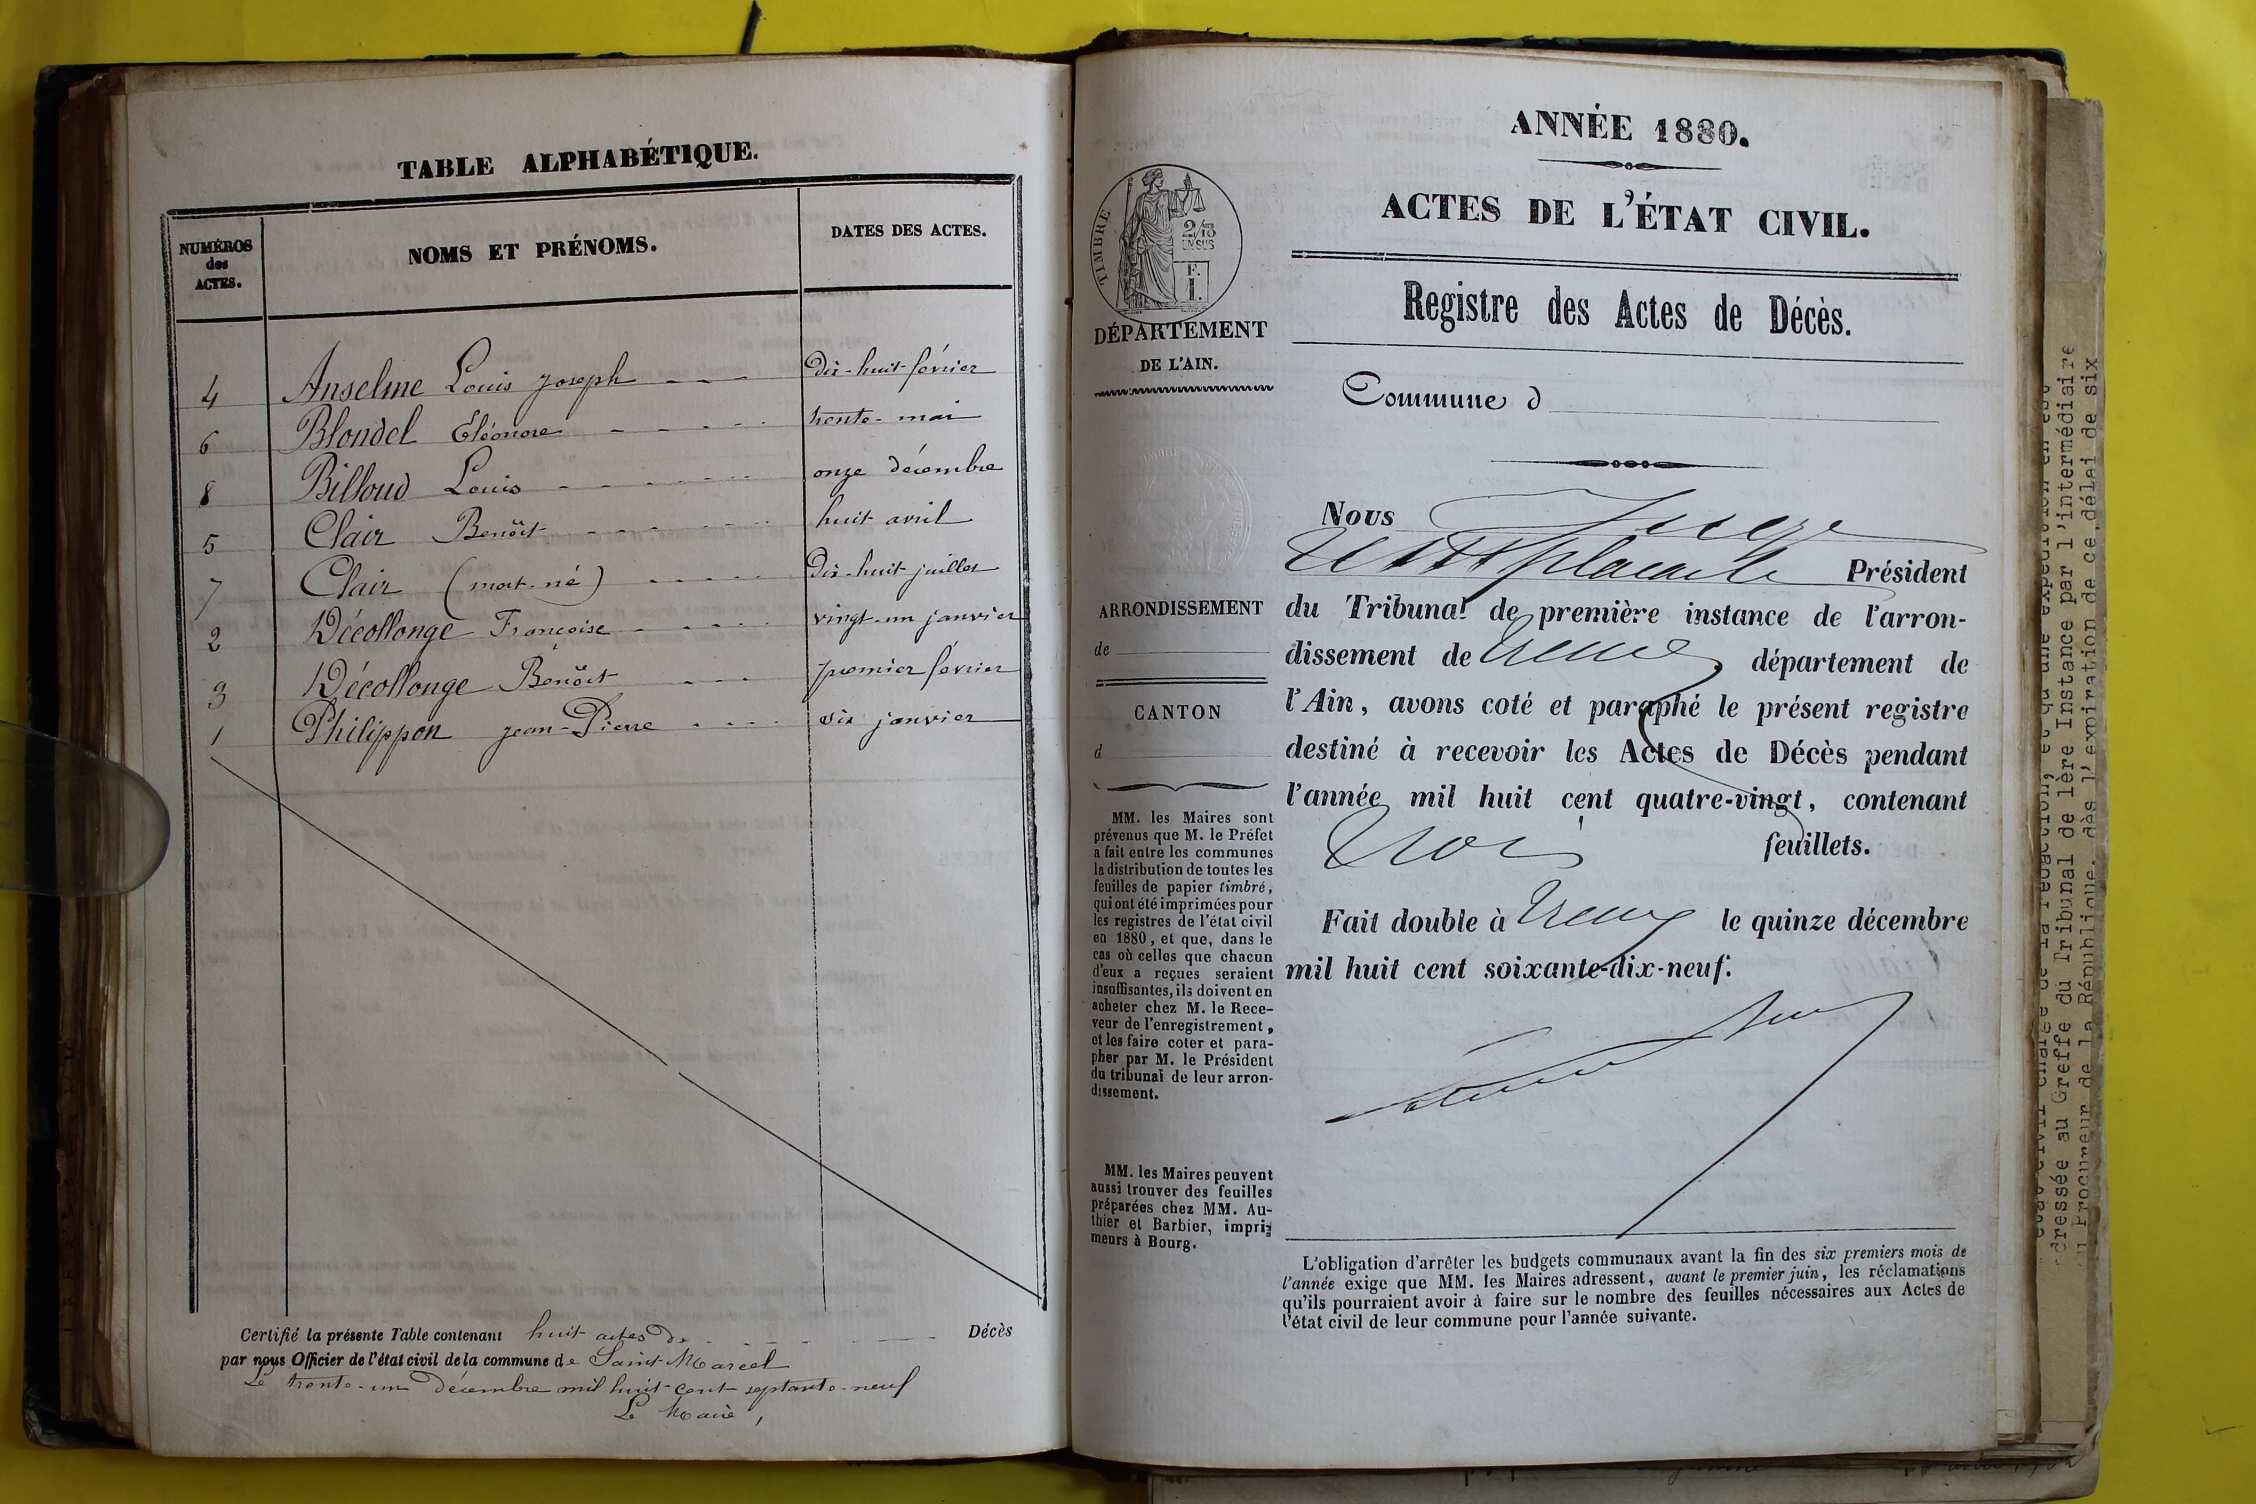 TABLE ALPHABÉTIQUE.
NUMÉROS
des
ACTES.
NOMS ET PRÉNOMS.
DATES DES ACTES.
4 Anselme Louis Joseph dix-huit février
6 Blondel Eléonore trente-mai
8 Billoud Louis onze décembre
5 Clair Benoît huit avril
7 Clair (mort-né) dix-huit juillet
2 Décollonge Françoise vingt-un janvier
3 Décollonge Benoît premier février
1 Philippon Jean-Pierre six janvier
Certifié la présente Table contenant huit actes de Décès
par nous Officier de l'état civil de la commune de Saint Marcel
Le trente-un décembre mil huit-cent septante-neuf
Le Maire,
ANNÉE 1880.
ACTES DE L'ÉTAT CIVIL.
Registre des Actes de Décès.
Commune d
TIMBRE
2/10
EN SUS
F.
I.
DÉPARTEMENT
DE L'AIN.
ARRONDISSEMENT
de
CANTON
d
MM. les Maires sont
prévenus que M. le Préfet
a fait entre les communes
la distribution de toutes les
feuilles de papier timbré,
qui ont été imprimées pour
les registres de l'état civil
en 1880, et que, dans le
cas où celles que chacun
d'eux a reçues seraient
insuffisantes, ils doivent en
acheter chez M. le Rece-
veur de l'enregistrement,
et les faire coter et para-
pher par M. le Président
du tribunal de leur arron-
dissement.
MM. les Maires peuvent
aussi trouver des feuilles
préparées chez MM. Au-
thier et Barbier, impri-
meurs à Bourg.
Nous Juge
Président
du Tribunal de première instance de l'arron-
dissement de Trévoux, département de
l'Ain, avons coté et paraphé le présent registre
destiné à recevoir les Actes de Décès pendant
l'année mil huit cent quatre-vingt, contenant
Trois feuillets.
Fait double à Trévoux le quinze décembre
mil huit cent soixante-dix-neuf.
L'obligation d'arrêter les budgets communaux avant la fin des six premiers mois de
l'année exige que MM. les Maires adressent, avant le premier juin, les réclamations
qu'ils pourraient avoir à faire sur le nombre des feuilles nécessaires aux Actes de
l'état civil de leur commune pour l'année suivante.
dressée au Greffe du Tribunal de 1ère Instance par l'intermédiaire
Procureur de la République, dès l'expiration de ce délai de six